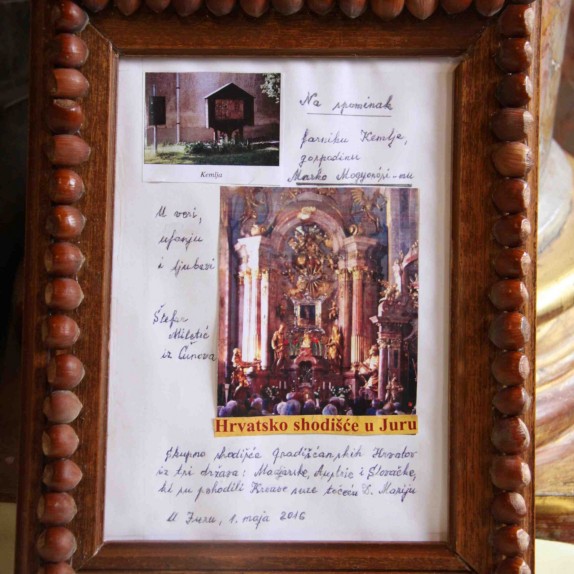 Na spominak
farniku Kemlje,
gospodinu
Marko Mogyorósi-nu
Kemlja
U veri,
ufanju
i ljubavi
Štefan
Miletić
iz Čunova
Hrvatsko shodišće u Juru
Skupno shodišće Gradišćanskih Hrvatov
iz tri držav: Madjarske, Austrie i Slovačke,
ki su pohodili Krvave suze točeću B. Mariju
U Juru, 1. maja 2016